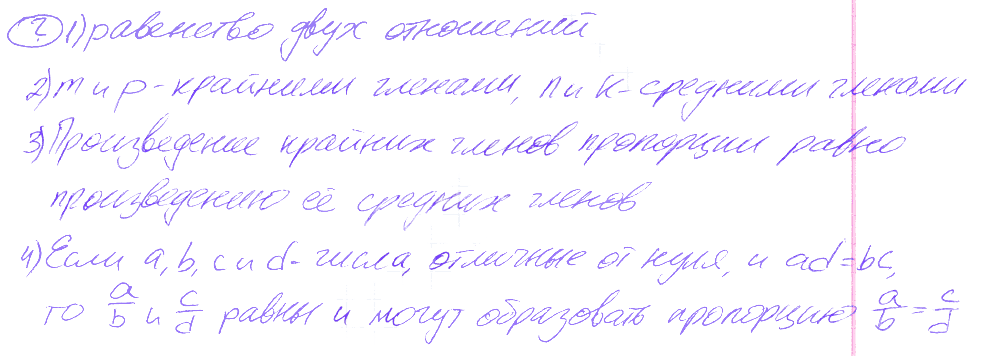 ? 1) равенство двух отношений
2) m и p - крайними членами, n и k - средними членами
3) Произведение крайних членов пропорции равно
произведению её средних членов
4) Если a, b, c и d - числа, отличные от нуля, и ad = bc,
то a/b и c/d равны и могут образовать пропорцию a/b = c/d